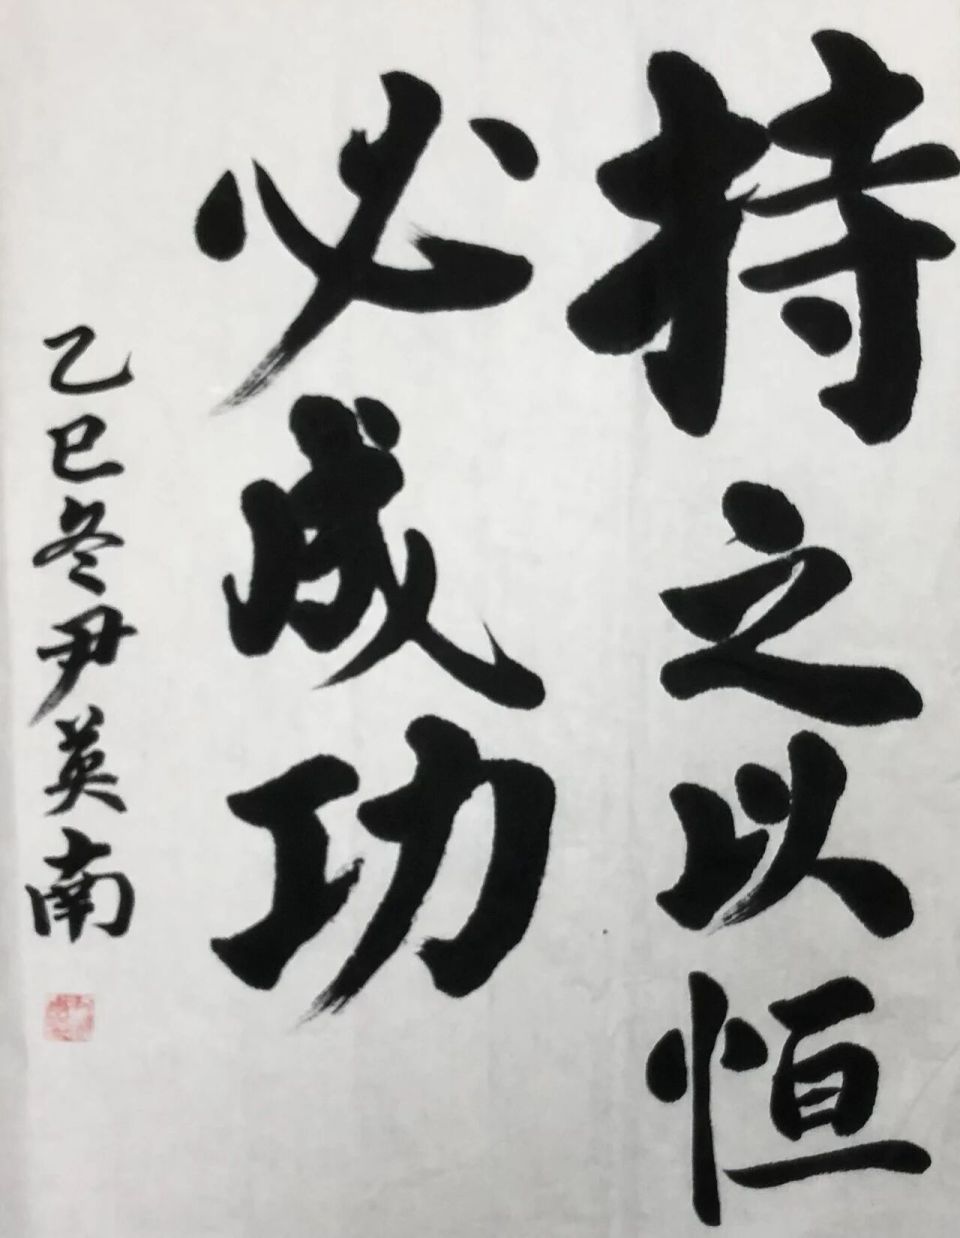 持之以恒
必成功
乙巳冬尹英南